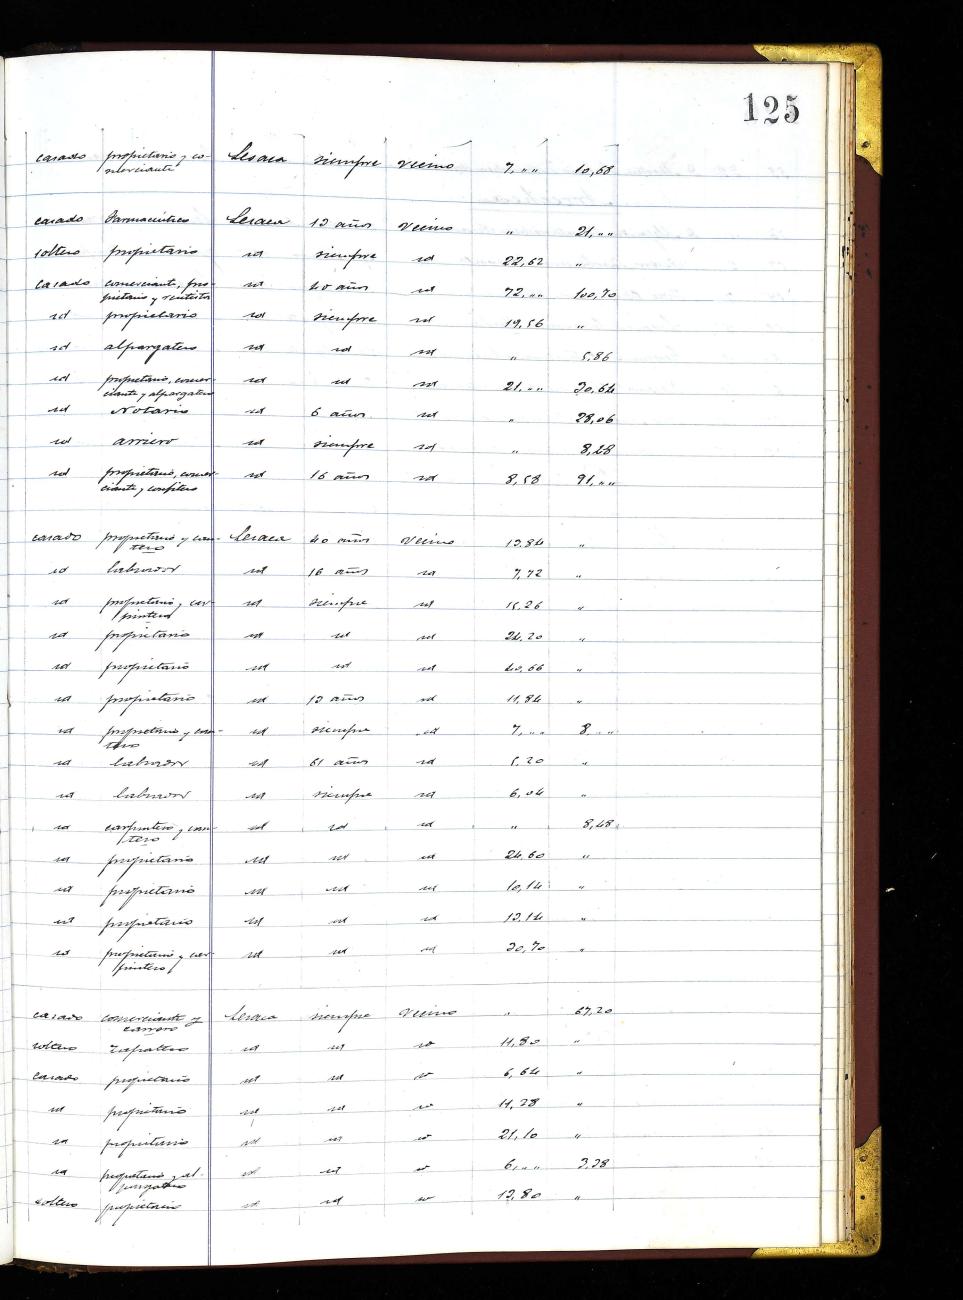 125
casado propietario y co- Lesaca siempre vecino 7, „ „ 10,68
merciante
casado Farmacéutico Lesaca 13 años vecino „ 21, „ „
soltero propietario id siempre id 22,62 „
casado comerciante, pro- id 40 años id 72, „ „ 100,70
pietario y rentista
id propietario id siempre id 19,56 „
id alpargatero id id id „ 5,86
id propietario, comer- id id id 21, „ „ 30,64
ciante y alpargatero
id Notario id 6 años id „ 28,06
id arriero id siempre id „ 8,48
id propietario, comer- id 16 años id 8,58 91, „ „
ciante y confitero
casado propietario y can- Lesaca 40 años vecino 13,84 „
tero
id labrador id 16 años id 7,72 „
id propietario y car- id siempre id 15,26 „
pintero
id propietario id id id 24,20 „
id propietario id id id 40,66 „
id propietario id 13 años id 11,84 „
id propietario y can- id siempre id 7, „ „ 8, „ „
tero
id labrador id 61 años id 5,20 „
id labrador id siempre id 6,04 „
id carpintero y can- id id id „ 8,48
tero
id propietario id id id 24,60 „
id propietario id id id 10,14 „
id propietario id id id 13,14 „
id propietario y car- id id id 30,70 „
pintero
casado comerciante y Lesaca siempre vecino „ 67,20
carrero
soltero zapatero id id id 11,80 „
casado propietario id id id 6,64 „
id propietario id id id 11,28 „
id propietario id id id 21,10 „
id propietario y al- id id id 6, „ „ 3,38
pargatero
soltero propietario id id id 13,80 „